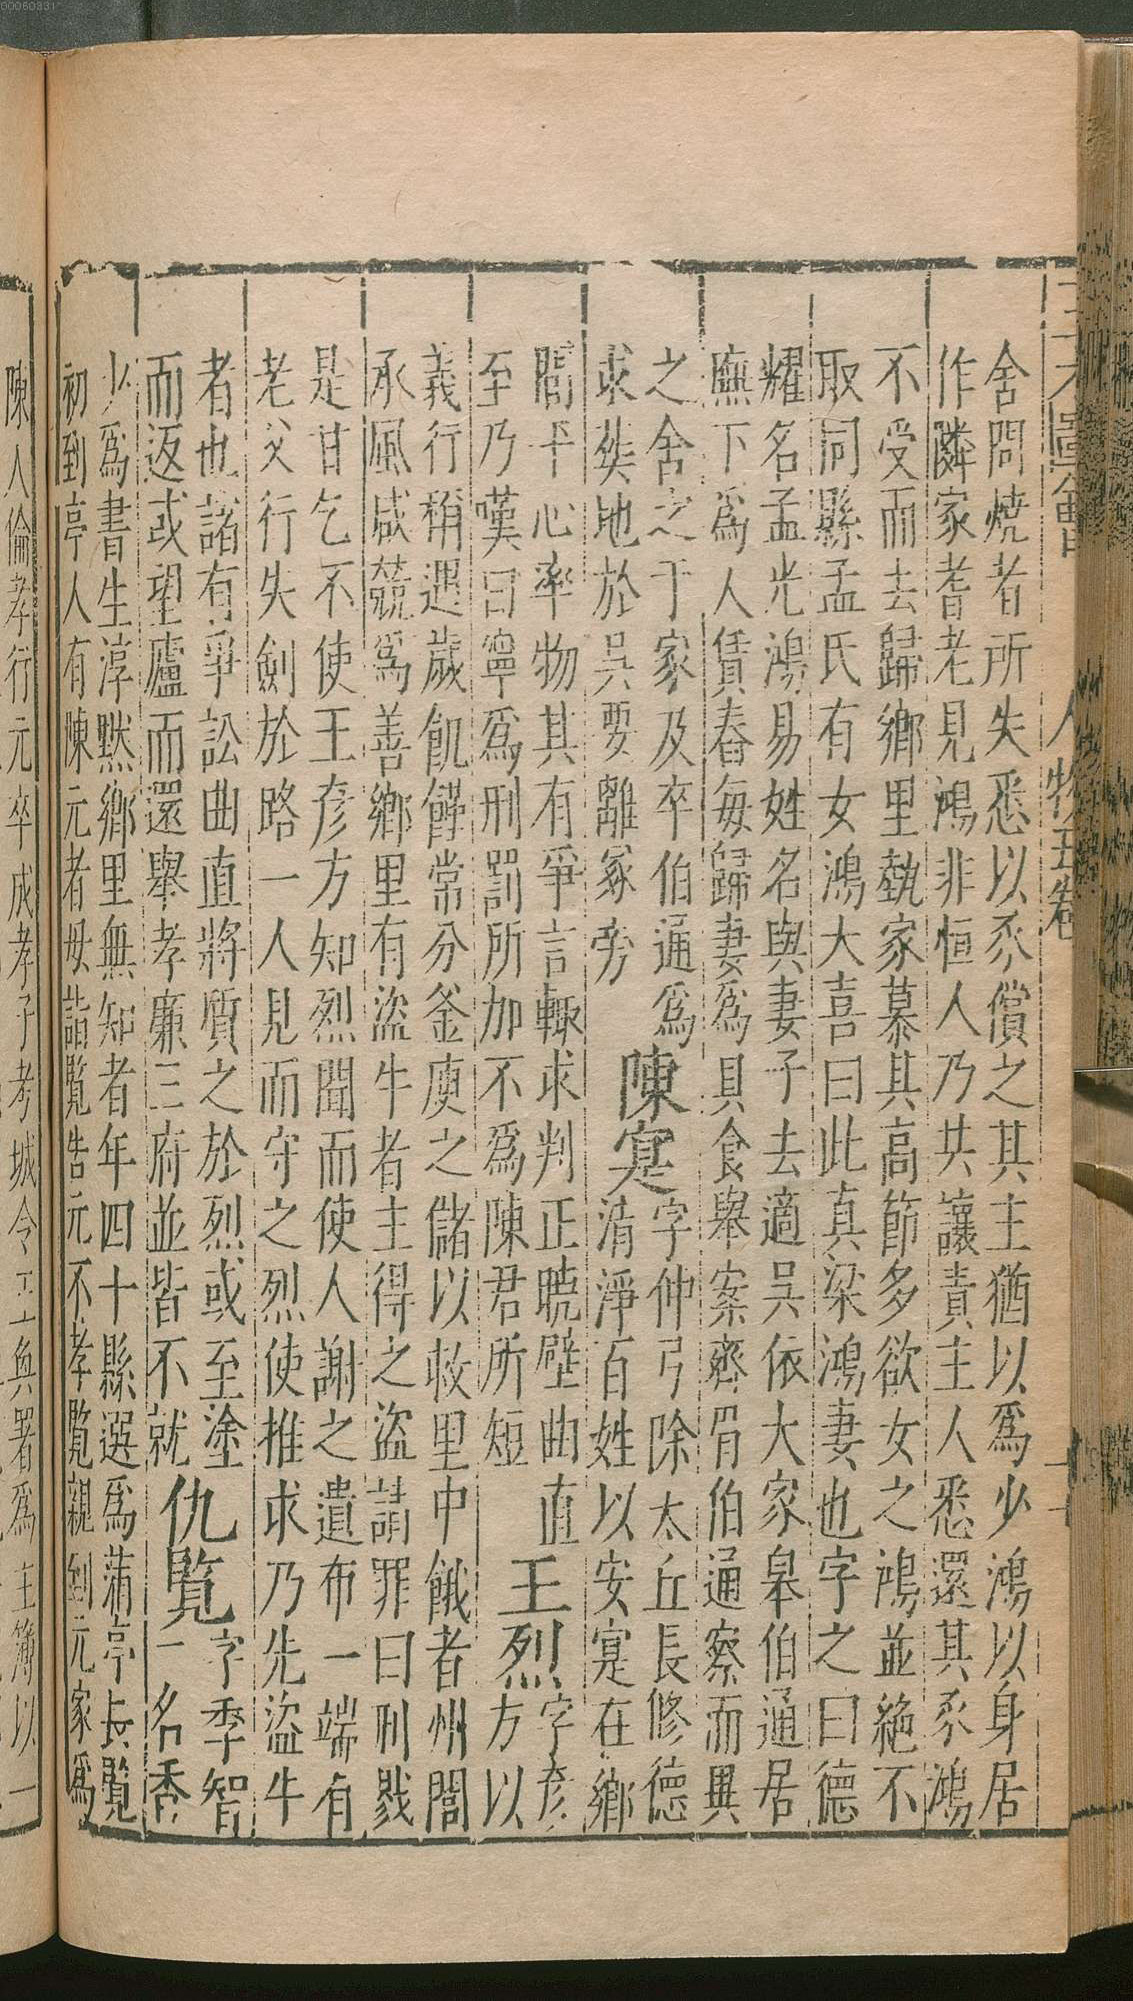 00060831
三才圖會
人物五卷
舍問燒者所失悉以豕償之其主猶以爲少鴻以身居
作隣家耆老見鴻非恒人乃共讓責主人悉還其豕鴻
不受而去歸鄉里執家慕其高節多欲女之鴻並絶不
取同縣孟氏有女鴻大喜曰此真梁鴻妻也字之曰德
耀名孟光鴻易姓名與妻子去適吳依大家皋伯通居
廡下爲人賃舂每歸妻爲具食舉案齊眉伯通察而異
之舍之于家及卒伯通爲
求葬地於吳要離冢旁
陳寔
字仲弓除太丘長修德
清淨百姓以安寔在鄉
閭平心率物其有爭言輙求判正曉譬曲直
至乃嘆曰寧爲刑罰所加不爲陳君所短
王烈
字彦
方以
義行稱遇歲飢饉常分釜庾之儲以救里中餓者州閭
承風咸競爲善鄉里有盜牛者主得之盜請罪曰刑戮
是甘乞不使王彦方知烈聞而使人謝之遺布一端有
老父行失劍於路一人見而守之烈使推求乃先盜牛
者也諸有爭訟曲直將質之於烈或至塗
而返或望廬而還舉孝廉三府並皆不就
仇覽
字季智
一名香
少爲書生淳黙鄉里無知者年四十縣選爲蒲亭長覽
初到亭人有陳元者母詣覽告元不孝覽親到元家爲
陳人倫孝行元卒成孝子考城令王奐署爲主簿以